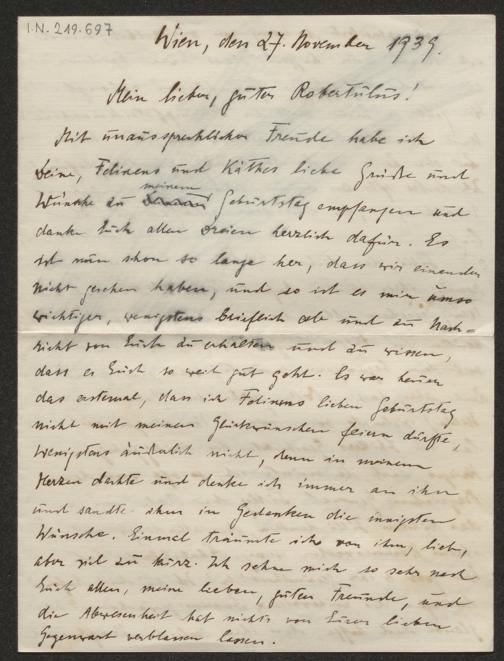 I.N. 219.697
Wien, den 27. November 1939.
Mein lieber, guter Robertulus!
Mit unaussprechlicher Freude habe ich
Deine, Felixens und Käthes liebe Grüße und
Wünsche zu meinem Geburtstag empfangen und
danke Euch allen Dreien herzlich dafür. Es
ist nun schon so lange her, dass wir einander
nicht gesehen haben, und so ist es mir umso
wichtiger, wenigstens brieflich ab und zu Nach-
richt von Euch zu erhalten und zu wissen,
dass es Euch so weit gut geht. Es war heuer
das erstemal, dass ich Felixens lieben Geburtstag
nicht mit meinen Glückwünschen feiern dürfte,
wenigstens äußerlich nicht, denn in meinem
Herzen dachte und denke ich immer an ihn
und sandte ihm in Gedanken die innigsten
Wünsche. Einmal träumte ich von ihm, lieb,
aber viel zu kurz. Ich sehne mich so sehr nach
Euch allen, meine lieben, guten Freunde, und
die Abwesenheit hat nichts von Eurer lieben
Gegenwart verblassen lassen.